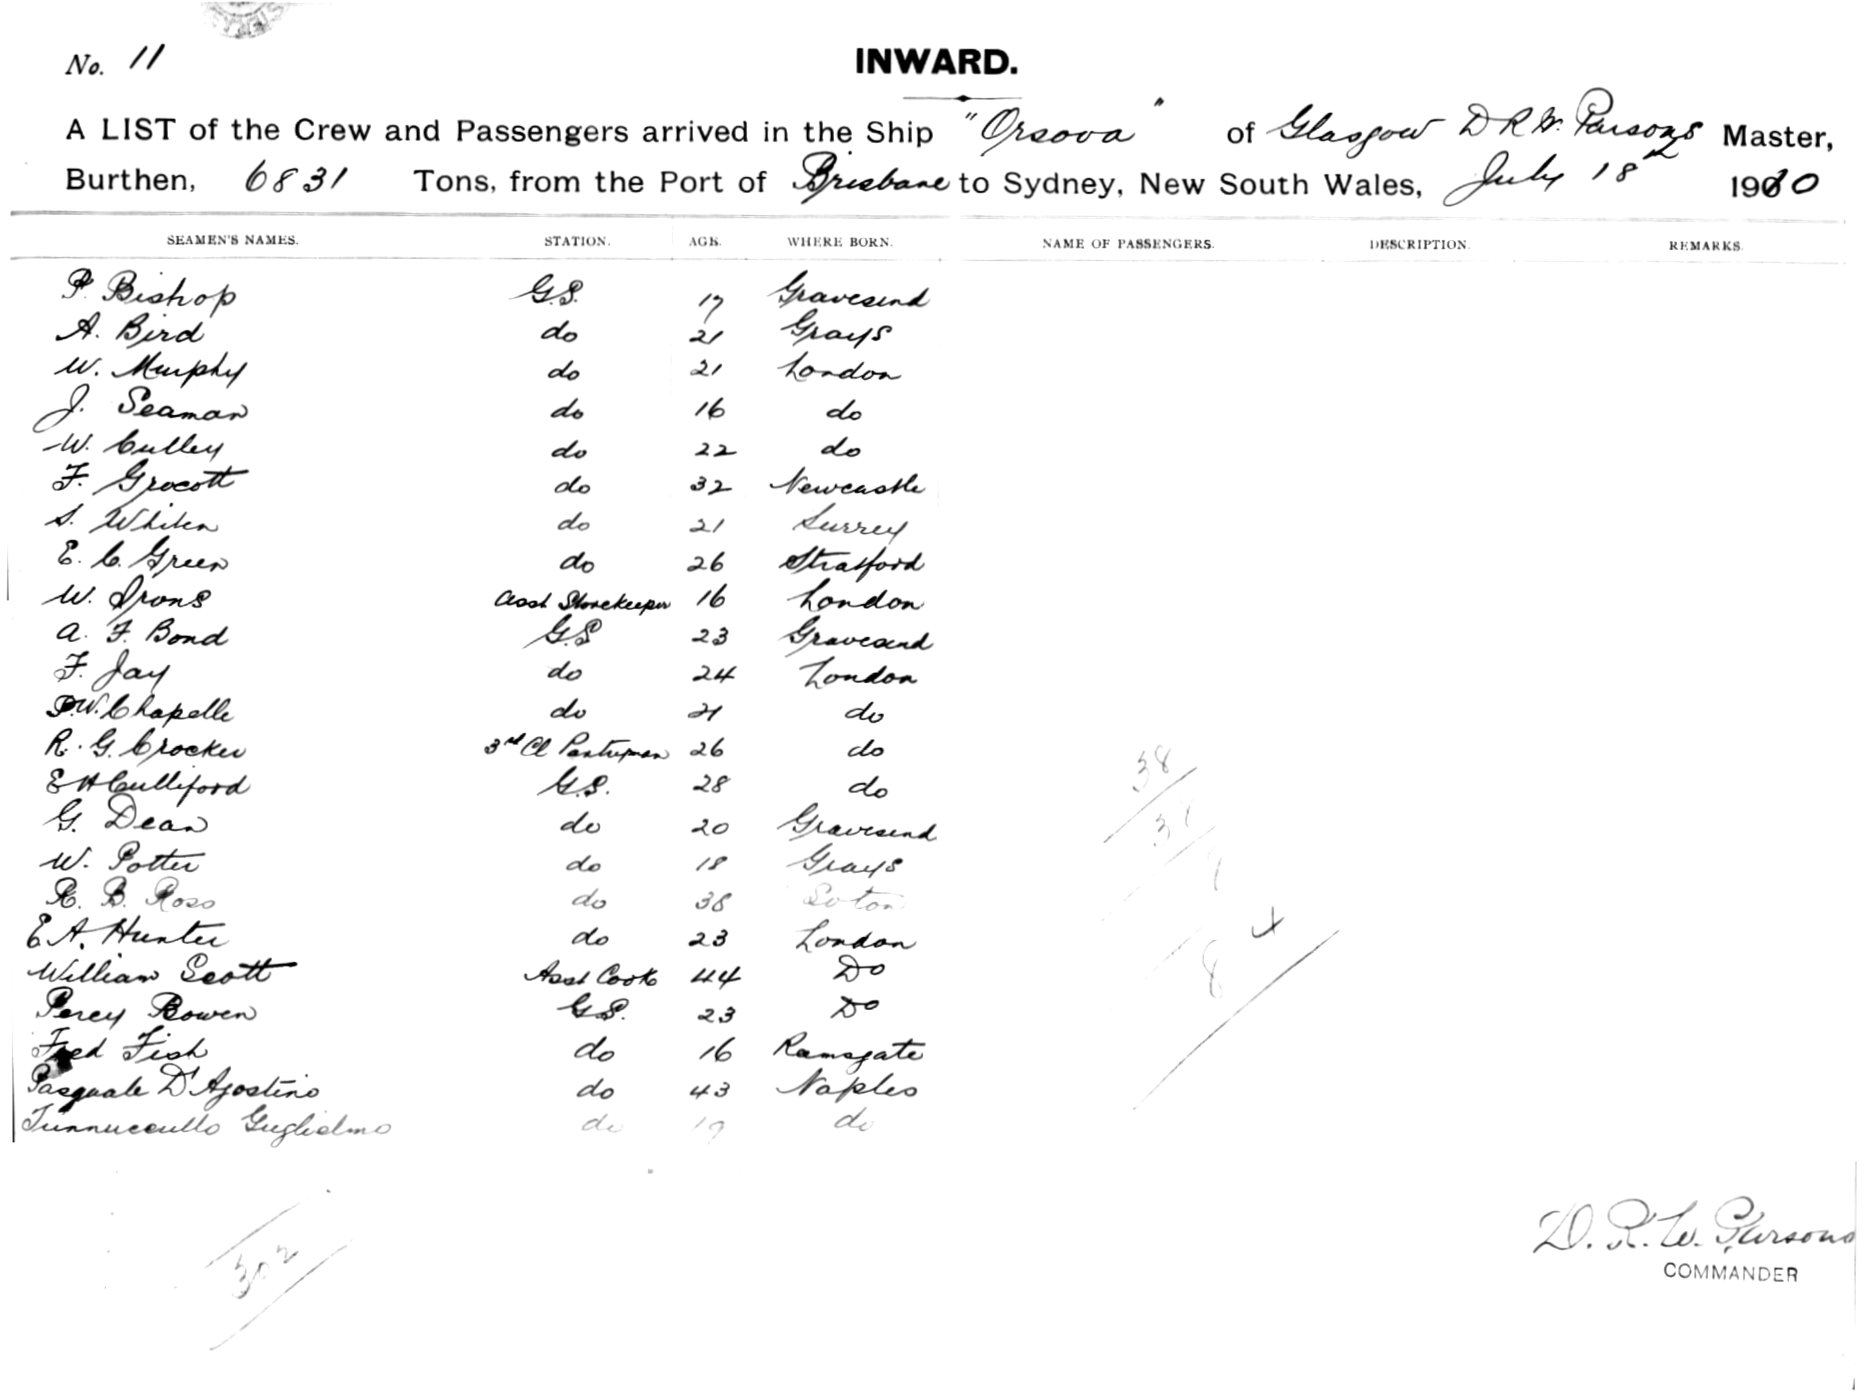 No. 11
INWARD.
A LIST of the Crew and Passengers arrived in the Ship "Orsova" of Glasgow D R W. Parsons Master,
Burthen, 6831 Tons, from the Port of Brisbane to Sydney, New South Wales, July 18th 1910
SEAMEN'S NAMES. STATION. AGE. WHERE BORN. NAME OF PASSENGERS. DESCRIPTION. REMARKS.
P. Bishop G.S. 17 Gravesend
A. Bird do 21 Grays
W. Murphy do 21 London
J. Seaman do 16 do
W. Culley do 22 do
F. Grocott do 32 Newcastle
S. Whiten do 21 Surrey
E. C. Green do 26 Stratford
W. Irons Asst Storekeeper 16 London
A. F. Bond G.S 23 Gravesend
F. Jay do 24 London
P.W. Chapelle do 21 do
R. G. Crocker 3rd Cl Pantryman 26 do
E H Culliford G.S. 28 do
G. Dean do 20 Gravesend
W. Potter do 18 Grays
R. B. Ross do 38 Soton
E A. Hunter do 23 London
William Scott Asst Cook 44 Do
Percy Bowen G.S. 23 Do
Fred Fish do 16 Ramsgate
Pasquale D'Agostino do 43 Naples
Guglielmo do 19 do
38
31
8
302
D. R. W. Parsons
COMMANDER